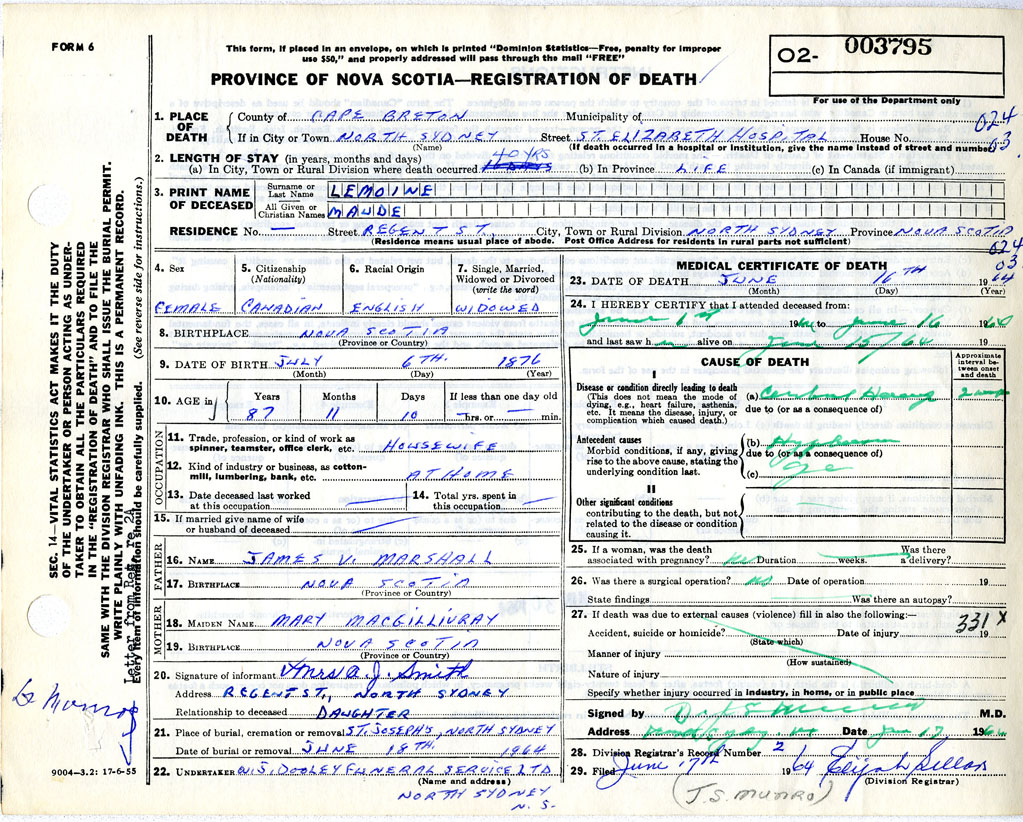 FORM 6
This form, if placed in an envelope, on which is printed "Dominion Statistics—Free, penalty for improper
use $50," and properly addressed will pass through the mail "FREE"
PROVINCE OF NOVA SCOTIA—REGISTRATION OF DEATH
02- 003795
For use of the Department only
1. PLACE OF DEATH
County of CAPE BRETON Municipality of 024
If in City or Town NORTH SYDNEY Street ST. ELIZABETH HOSPITAL House No. 03
(Name) (If death occurred in a hospital or institution, give the name instead of street and number)
2. LENGTH OF STAY (in years, months and days)
(a) In City, Town or Rural Division where death occurred 40 YRS (b) In Province LIFE (c) In Canada (if immigrant)
3. PRINT NAME OF DECEASED
Surname or Last Name LEMOINE
All Given or Christian Names MAUDE
RESIDENCE No. — Street REGENT ST., City, Town or Rural Division NORTH SYDNEY Province NOVA SCOTIA
(Residence means usual place of abode. Post Office Address for residents in rural parts not sufficient)
024
03
4. Sex
FEMALE
5. Citizenship
(Nationality)
CANADIAN
6. Racial Origin
ENGLISH
7. Single, Married,
Widowed or Divorced
(write the word)
WIDOWED
8. BIRTHPLACE NOVA SCOTIA
(Province or Country)
9. DATE OF BIRTH JULY 6TH. 1876
(Month) (Day) (Year)
10. AGE in
Years Months Days If less than one day old
87 11 10 — hrs. or — min.
OCCUPATION
11. Trade, profession, or kind of work as
spinner, teamster, office clerk, etc. HOUSEWIFE
12. Kind of industry or business, as cotton-
mill, lumbering, bank, etc. AT HOME
13. Date deceased last worked
at this occupation
14. Total yrs. spent in
this occupation
15. If married give name of wife
or husband of deceased
FATHER
16. NAME JAMES V. MARSHALL
17. BIRTHPLACE NOVA SCOTIA
(Province or Country)
MOTHER
18. MAIDEN NAME MARY MACGILLIVRAY
19. BIRTHPLACE NOVA SCOTIA
(Province or Country)
20. Signature of informant Mrs A. J. Smith
Address REGENT ST., NORTH SYDNEY
Relationship to deceased DAUGHTER
21. Place of burial, cremation or removal ST. JOSEPH'S, NORTH SYDNEY
Date of burial or removal JUNE 18TH. 1964
22. UNDERTAKER W.J. DOOLEY FUNERAL SERVICE LTD
(Name and address)
NORTH SYDNEY
N. S.
MEDICAL CERTIFICATE OF DEATH
23. DATE OF DEATH JUNE 16TH 1964
(Month) (Day) (Year)
24. I HEREBY CERTIFY that I attended deceased from:
June 1st 1964 to June 16 1964
and last saw her alive on June 15/64 19
CAUSE OF DEATH
Approximate interval between onset and death
I
Disease or condition directly leading to death
(This does not mean the mode of
dying, e.g., heart failure, asthenia,
etc. It means the disease, injury, or
complication which caused death.)
(a)
due to (or as a consequence of)
Antecedent causes
Morbid conditions, if any, giving
rise to the above cause, stating the
underlying condition last.
(b)
due to (or as a consequence of)
(c) age
II
Other significant conditions
contributing to the death, but not
related to the disease or condition
causing it.
25. If a woman, was the death
associated with pregnancy? no Duration weeks. Was there a delivery?
26. Was there a surgical operation? no Date of operation 19
State findings Was there an autopsy?
27. If death was due to external causes (violence) fill in also the following:—
331 X
Accident, suicide or homicide? Date of injury 19
(State which)
Manner of injury
(How sustained)
Nature of injury
Specify whether injury occurred in industry, in home, or in public place
Signed by M.D.
Address Date Jun 17 1964
28. Division Registrar's Record Number 2
29. Filed June 17th 1964
(Division Registrar)
(J.S. MUNRO)
SEC. 14—VITAL STATISTICS ACT MAKES IT THE DUTY
OF THE UNDERTAKER OR PERSON ACTING AS UNDER-
TAKER TO OBTAIN ALL THE PARTICULARS REQUIRED
IN THE "REGISTRATION OF DEATH" AND TO FILE THE
SAME WITH THE DIVISION REGISTRAR WHO SHALL ISSUE THE BURIAL PERMIT.
WRITE PLAINLY WITH UNFADING INK. THIS IS A PERMANENT RECORD.
Every item of information should be carefully supplied. (See reverse side for instructions.)
Letter from Reg re 2A
Dr Munro
9004—3.2: 17-6-55